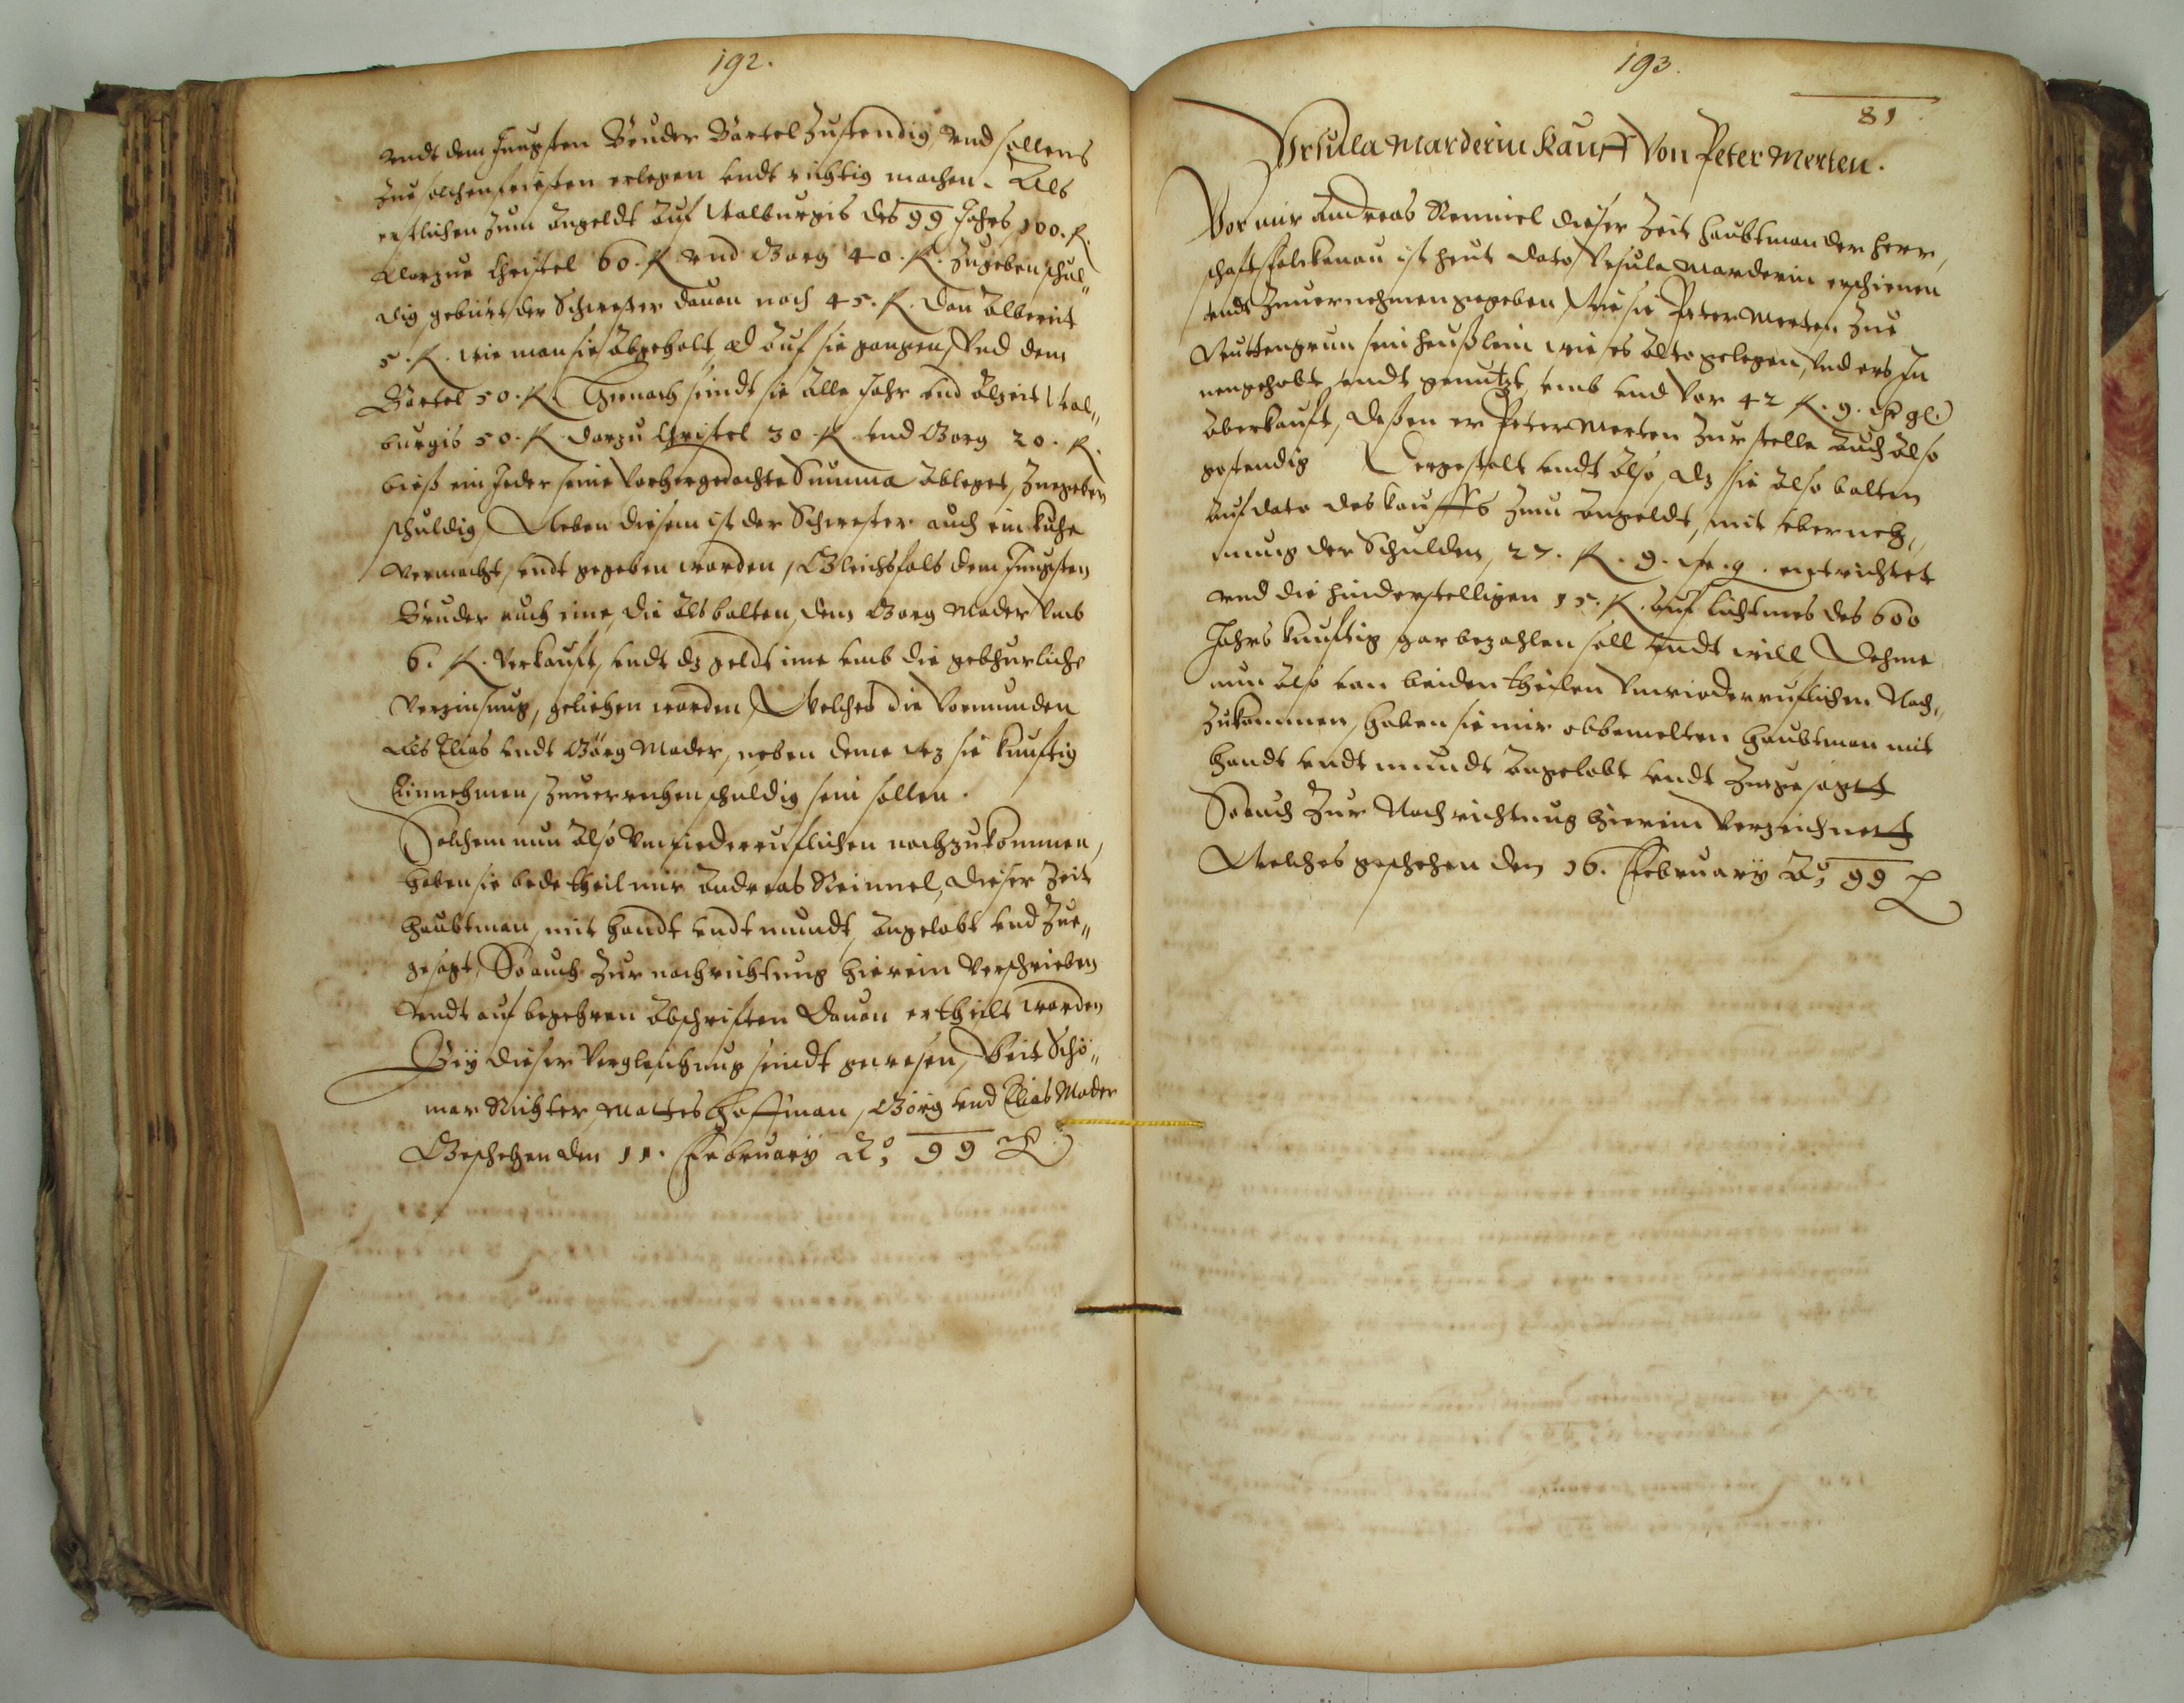 192.
vndt dem Jungsten Bruder Bartel zustendig, vnd sollens
zue solchen fristen erlegen vndt richtig machen. Als
erstlichen zum Angeldt auf Walburgis des 99 Jahrs 100. fl.
Darzue Christel 60. fl vnd Georg 40. fl. zugeben schul„
dig gebürt der Schwester dauon noch 45. fl. dan Albereit
5. fl. wie man sie Abgeholt auf sie gangen, Vnd dem
Bartel 50. fl. Hernach seindt sie Alle Jahr vnd Alzeit Wal„
burgis 50. fl. darzu Christel 30. fl. vnd Georg 20. fl.
bieß ein Jeder seine Vorhergedachte Summa Ableget, zuegeben
schuldig, Neben diesem ist der Schwester auch ein kuhe
vermacht, vndt gegeben worden, Gleichsfals dem Jungsten
Bruder auch eine, die Alsbalten, dem Georg Mader Vmb
6. fl. Verkauft, vndt dz geldt ime vmb die gebhurliche
Verzinsung, geliehen worden, Welches die Vormunden
Als Elias vndt Görg Mader, neben deme wz sie kunftig
Einnehmen, zuuerrechen schuldig sein sollen.
Solchem nun Also Vnwiederruflichen nachzukommen,
haben sie bede theil mir Andreas Reimmel, dieser Zeit
haubtman, mit handt vndt mundt, Angelobt vnd Zue„
gesagt, So auch zur nachrichtung hierein Verschrieben
vndt auf begehren Abschriften dauon ertheilt worden
Bey dieser Vergleichung seindt gewesen, Veit Schö„
mer Richter, Mattes Hoffman, Görg vnd Elias Mader
Geschehen den 11. February Ao, 99
193.
81.
Vrsula Marderin Kauff Von Peter Merten.
Vor mir Andreas Remmel dieser Zeit haubtman der Herr„
schaft falckenau ist heut dato Vrsula Marderin erschienen
vndt zuuernehmen gegeben, Wie sie Peter Merten zue
sein heußlein wie es Alto gelegen, Vnd ers In„
nengehabt, vndt genutzt, vmb vnd vor 42 fl. 9. gl.
Aberkauft, deßen er Peter Merten zur stelle Auch Also
gestendig Dergestalt vndt Also, dz sie Also balten
auf dato des kauffs zum Angeldt, mit vberneh„
mung der Schulden, 27. fl. 9. g. entrichtet
vnd die hinderstelligen 15. fl. auf Lichtmes des 600
Jahrs kunftig gar bezahlen soll vndt will Dehme
nun Also von beiden theilen Vnwiederruflichen Nach„
zukommen, haben sie mir obbemelten haubtman mit
handt vndt mundt Angelobt vndt Zuegesagt
So auch zur Nachrichtung hierein Verzeichnet
Welches geschehen den 16. February Ao, 99